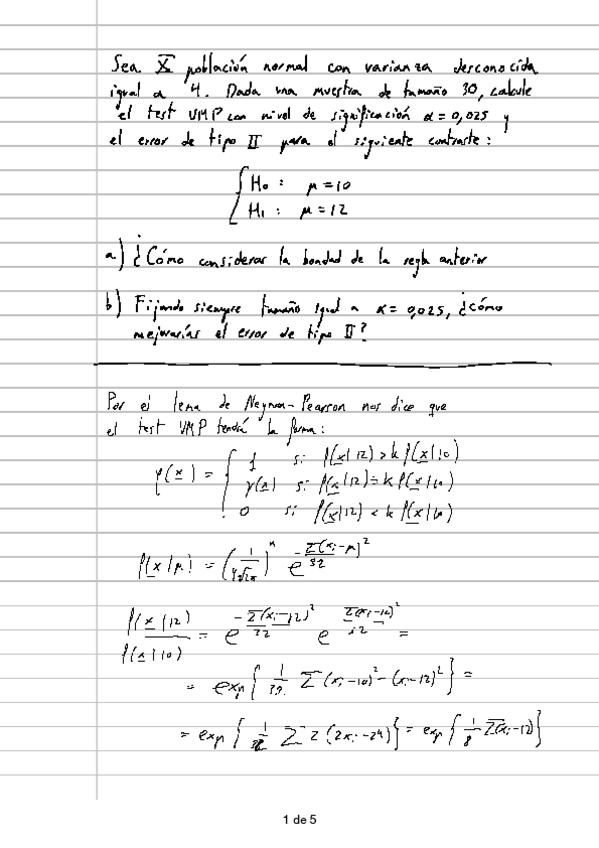 Sea X población normal con varianza desconocida
igual a 4. Dada una muestra de tamaño 30, calcule
el test UMP con nivel de significación α = 0,025 y
el error de tipo II para el siguiente contraste:
{ H₀ : μ = 10
H₁ : μ = 12
a) ¿Cómo considerar la bondad de la regla anterior
b) Fijando siempre tamaño igual a α = 0,025, ¿cómo
mejorarías el error de tipo II?
Por el lema de Neyman-Pearson nos dice que
el test UMP tendrá la forma:
φ(x) = { 1 si f(x|12) > k f(x|10)
γ(x) si f(x|12) = k f(x|10)
0 si f(x|12) < k f(x|10)
f(x|μ) = (1/(4√2π))ⁿ e^(-Σ(xᵢ-μ)²/32)
f(x|12)/f(x|10) = e^(-Σ(xᵢ-12)²/32) e^(Σ(xᵢ-10)²/32) =
= exp{ 1/32 Σ (xᵢ-10)² - (xᵢ-12)² } =
= exp{ 1/32 Σ 2 (2xᵢ-24) } = exp{ 1/8 Σ(xᵢ-12) }
1 de 5